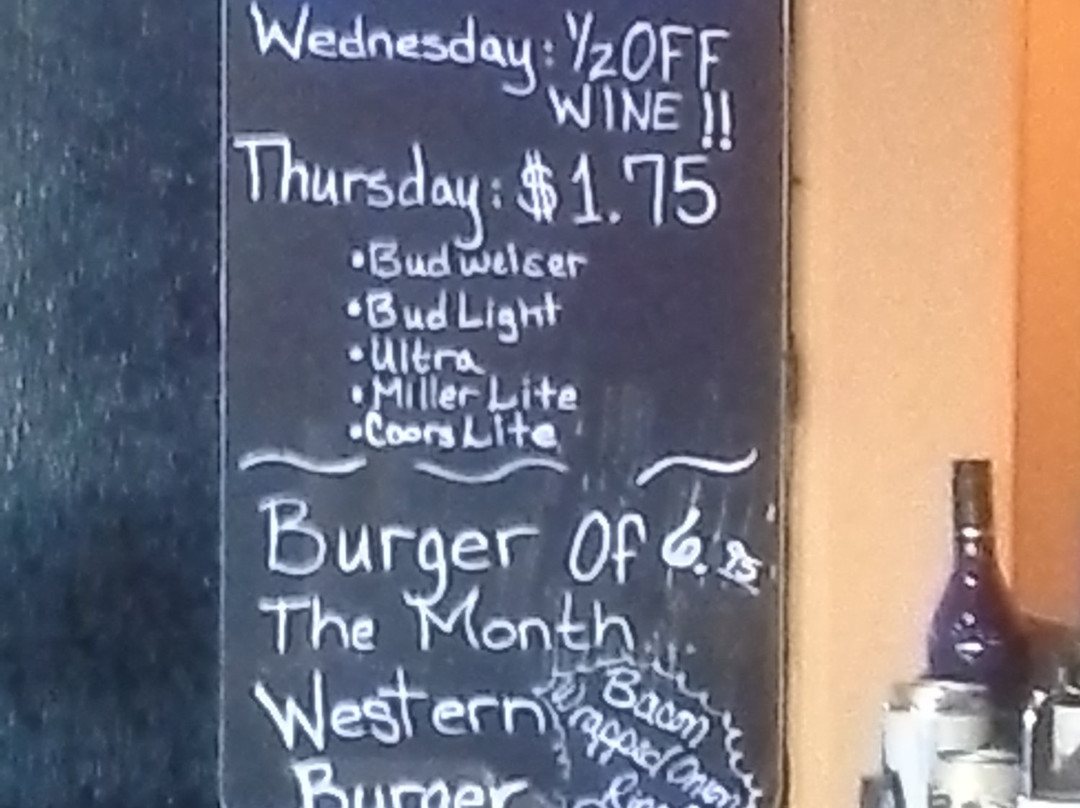 Wednesday: ½ OFF
WINE !!
Thursday: $1.75
•Budweiser
•Bud Light
•Ultra
•Miller Lite
•Coors Lite
Burger Of 6.95
The Month
Western
Burger
Bacon
Wrapped Onion